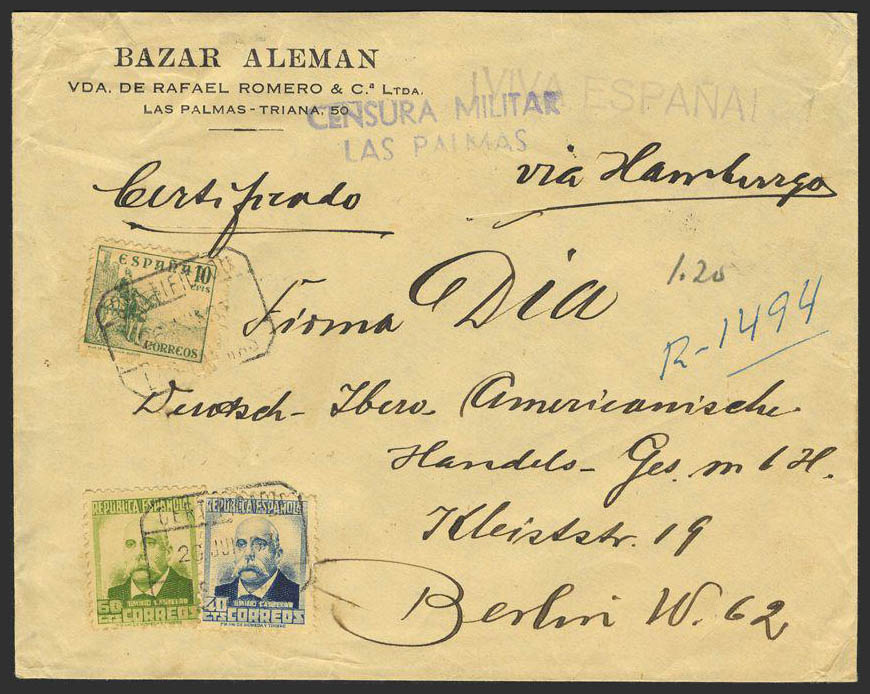 BAZAR ALEMAN
VDA. DE RAFAEL ROMERO & C.ª LTDA.
LAS PALMAS - TRIANA, 50
¡VIVA ESPAÑA!
CENSURA MILITAR
LAS PALMAS
Certificado
via Hamburgo
1.20
R-1494
ESPAÑA 10
CTS
CORREOS
Firma Dia
Deutsch- Ibero- Americanische
Handels- Ges. m b H.
Kleiststr. 19
Berlin W. 62
REPUBLICA ESPAÑOLA
EMILIO CASTELAR
60 CTS CORREOS
REPUBLICA ESPAÑOLA
EMILIO CASTELAR
40 CTS CORREOS
CERTIFICADO
26 JUN